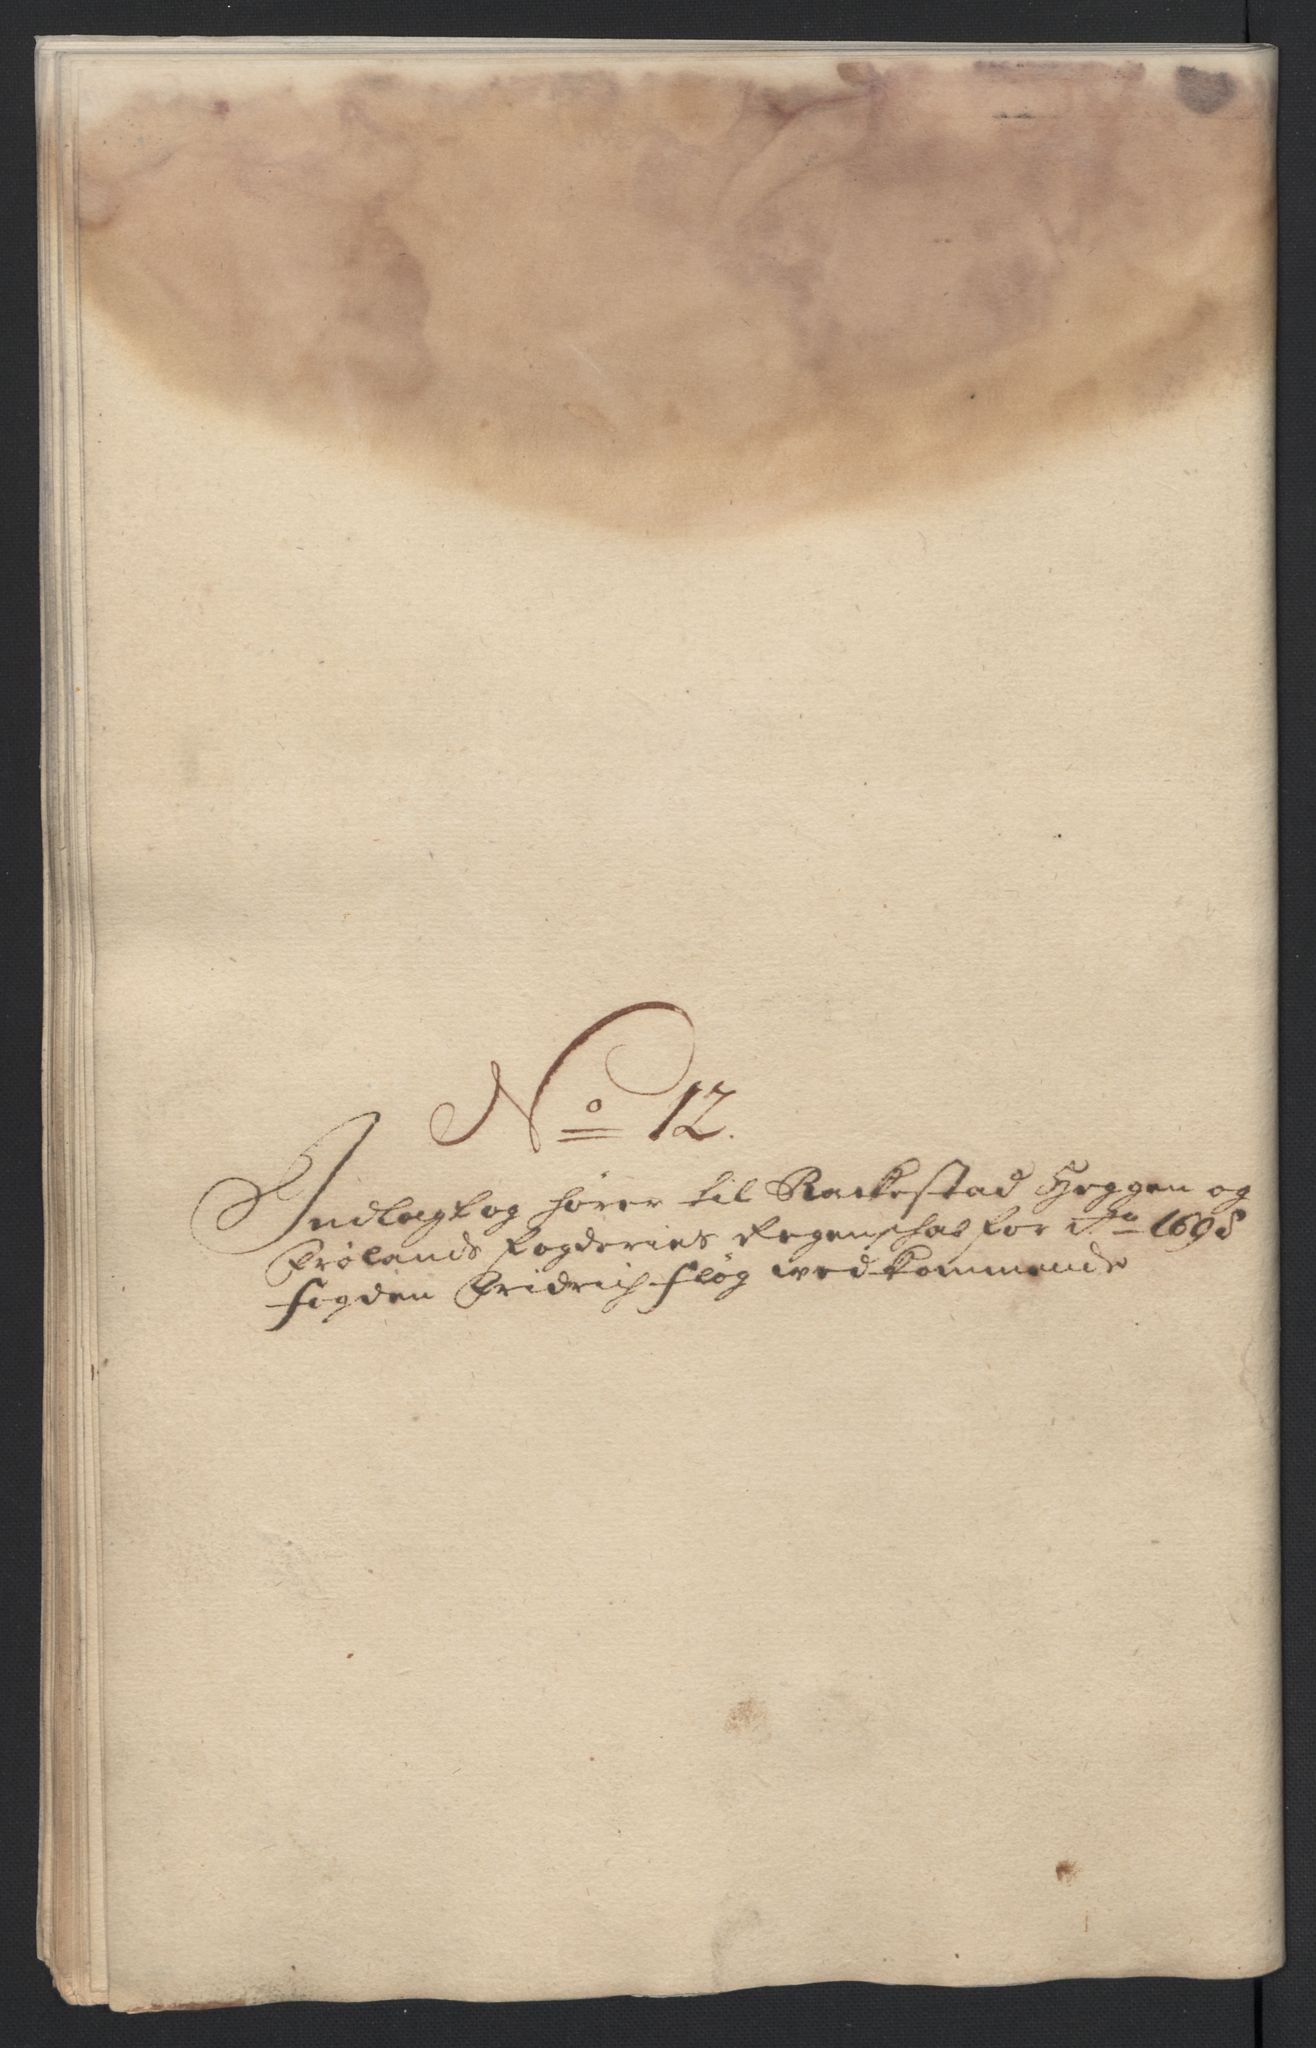 No 12.
Indlagt og hører til Rackestad Heggen og
Frølands fogderies Regenschab for Ao 1698
fogden Fridrich Fløg vedkommende